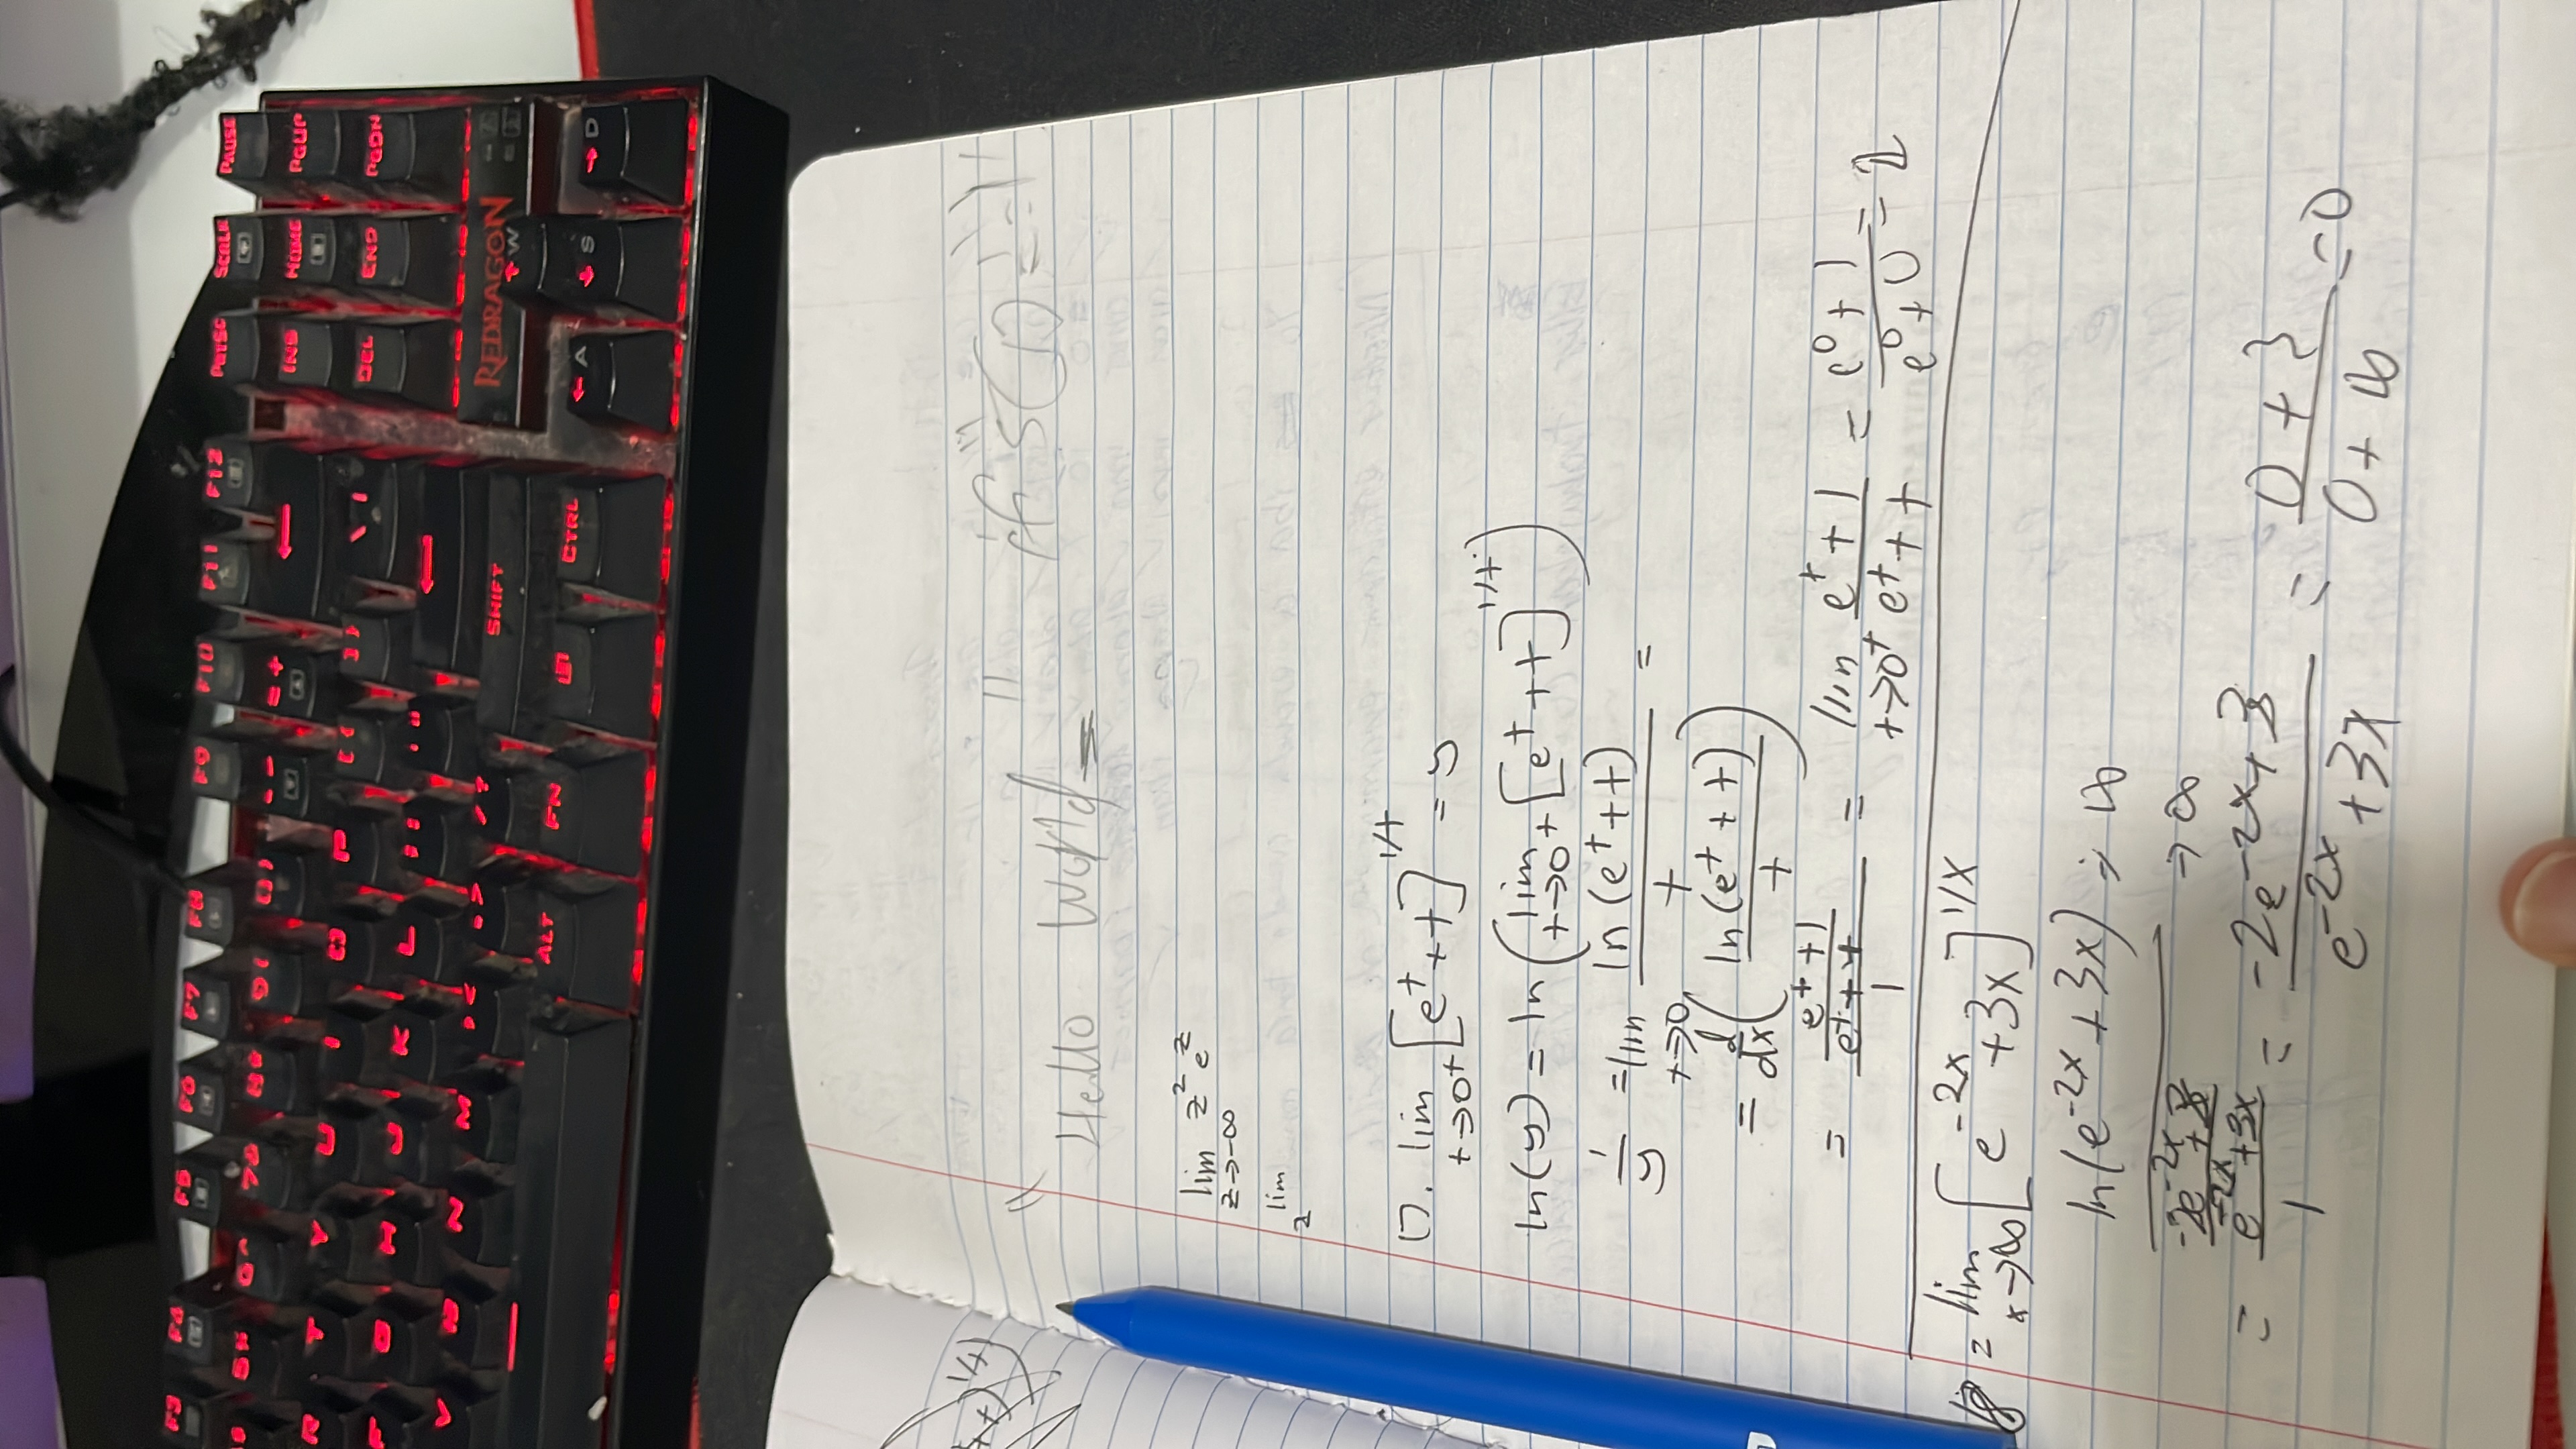 F3 F4 F5 F6 F7 F8 F9 F10 F11 F12 PRTSC SCRLK PAUSE
5% 6^ 7& 8* 9( 0) -- =+ ← INS HOME PGUP
R T Y U I O P [{ ]} \| DEL END PGDN
F G H J K L ;: '" ←
V B N M ,< .> /? SHIFT REDRAGON ↑W
ALT FN CTRL ←A ↓S →D
1/4)
"Hello World= "
lim z→-∞ z² e^z
lim
z
17. lim t→0+ [e^t+t]^1/t = y
ln(y) = ln(lim t→0+ [e^t+t]^1/t)
1/y = lim t→0 ln(e^t+t)/t =
= d/dx (ln(e^t+t)/t)
= ((e^t+1)/(e^t+t))/1 = lim t→0+ (e^t+1)/(e^t+t) = (e^0+1)/(e^0+0) = 2
= lim x→∞ [e^-2x+3x]^1/x
ln(e^-2x+3x) → ∞
→ ∞
= ((-2e^-2x+3)/(e^-2x+3x))/1 = (-2e^-2x+3)/(e^-2x+3x) = (0+3)/(0+∞) = 0